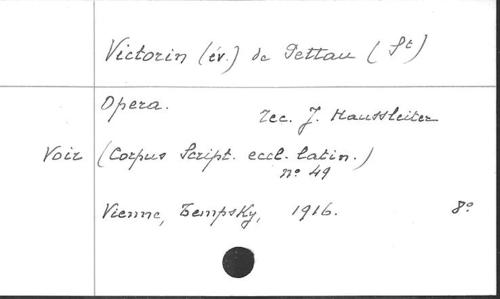 Victorin (év.) de Pettau (St)
Opera.
rec. J. Haussleiter
Voir (Corpus Script. eccl. latin.)
nº 49
Vienne, Tempsky, 1916. 8º